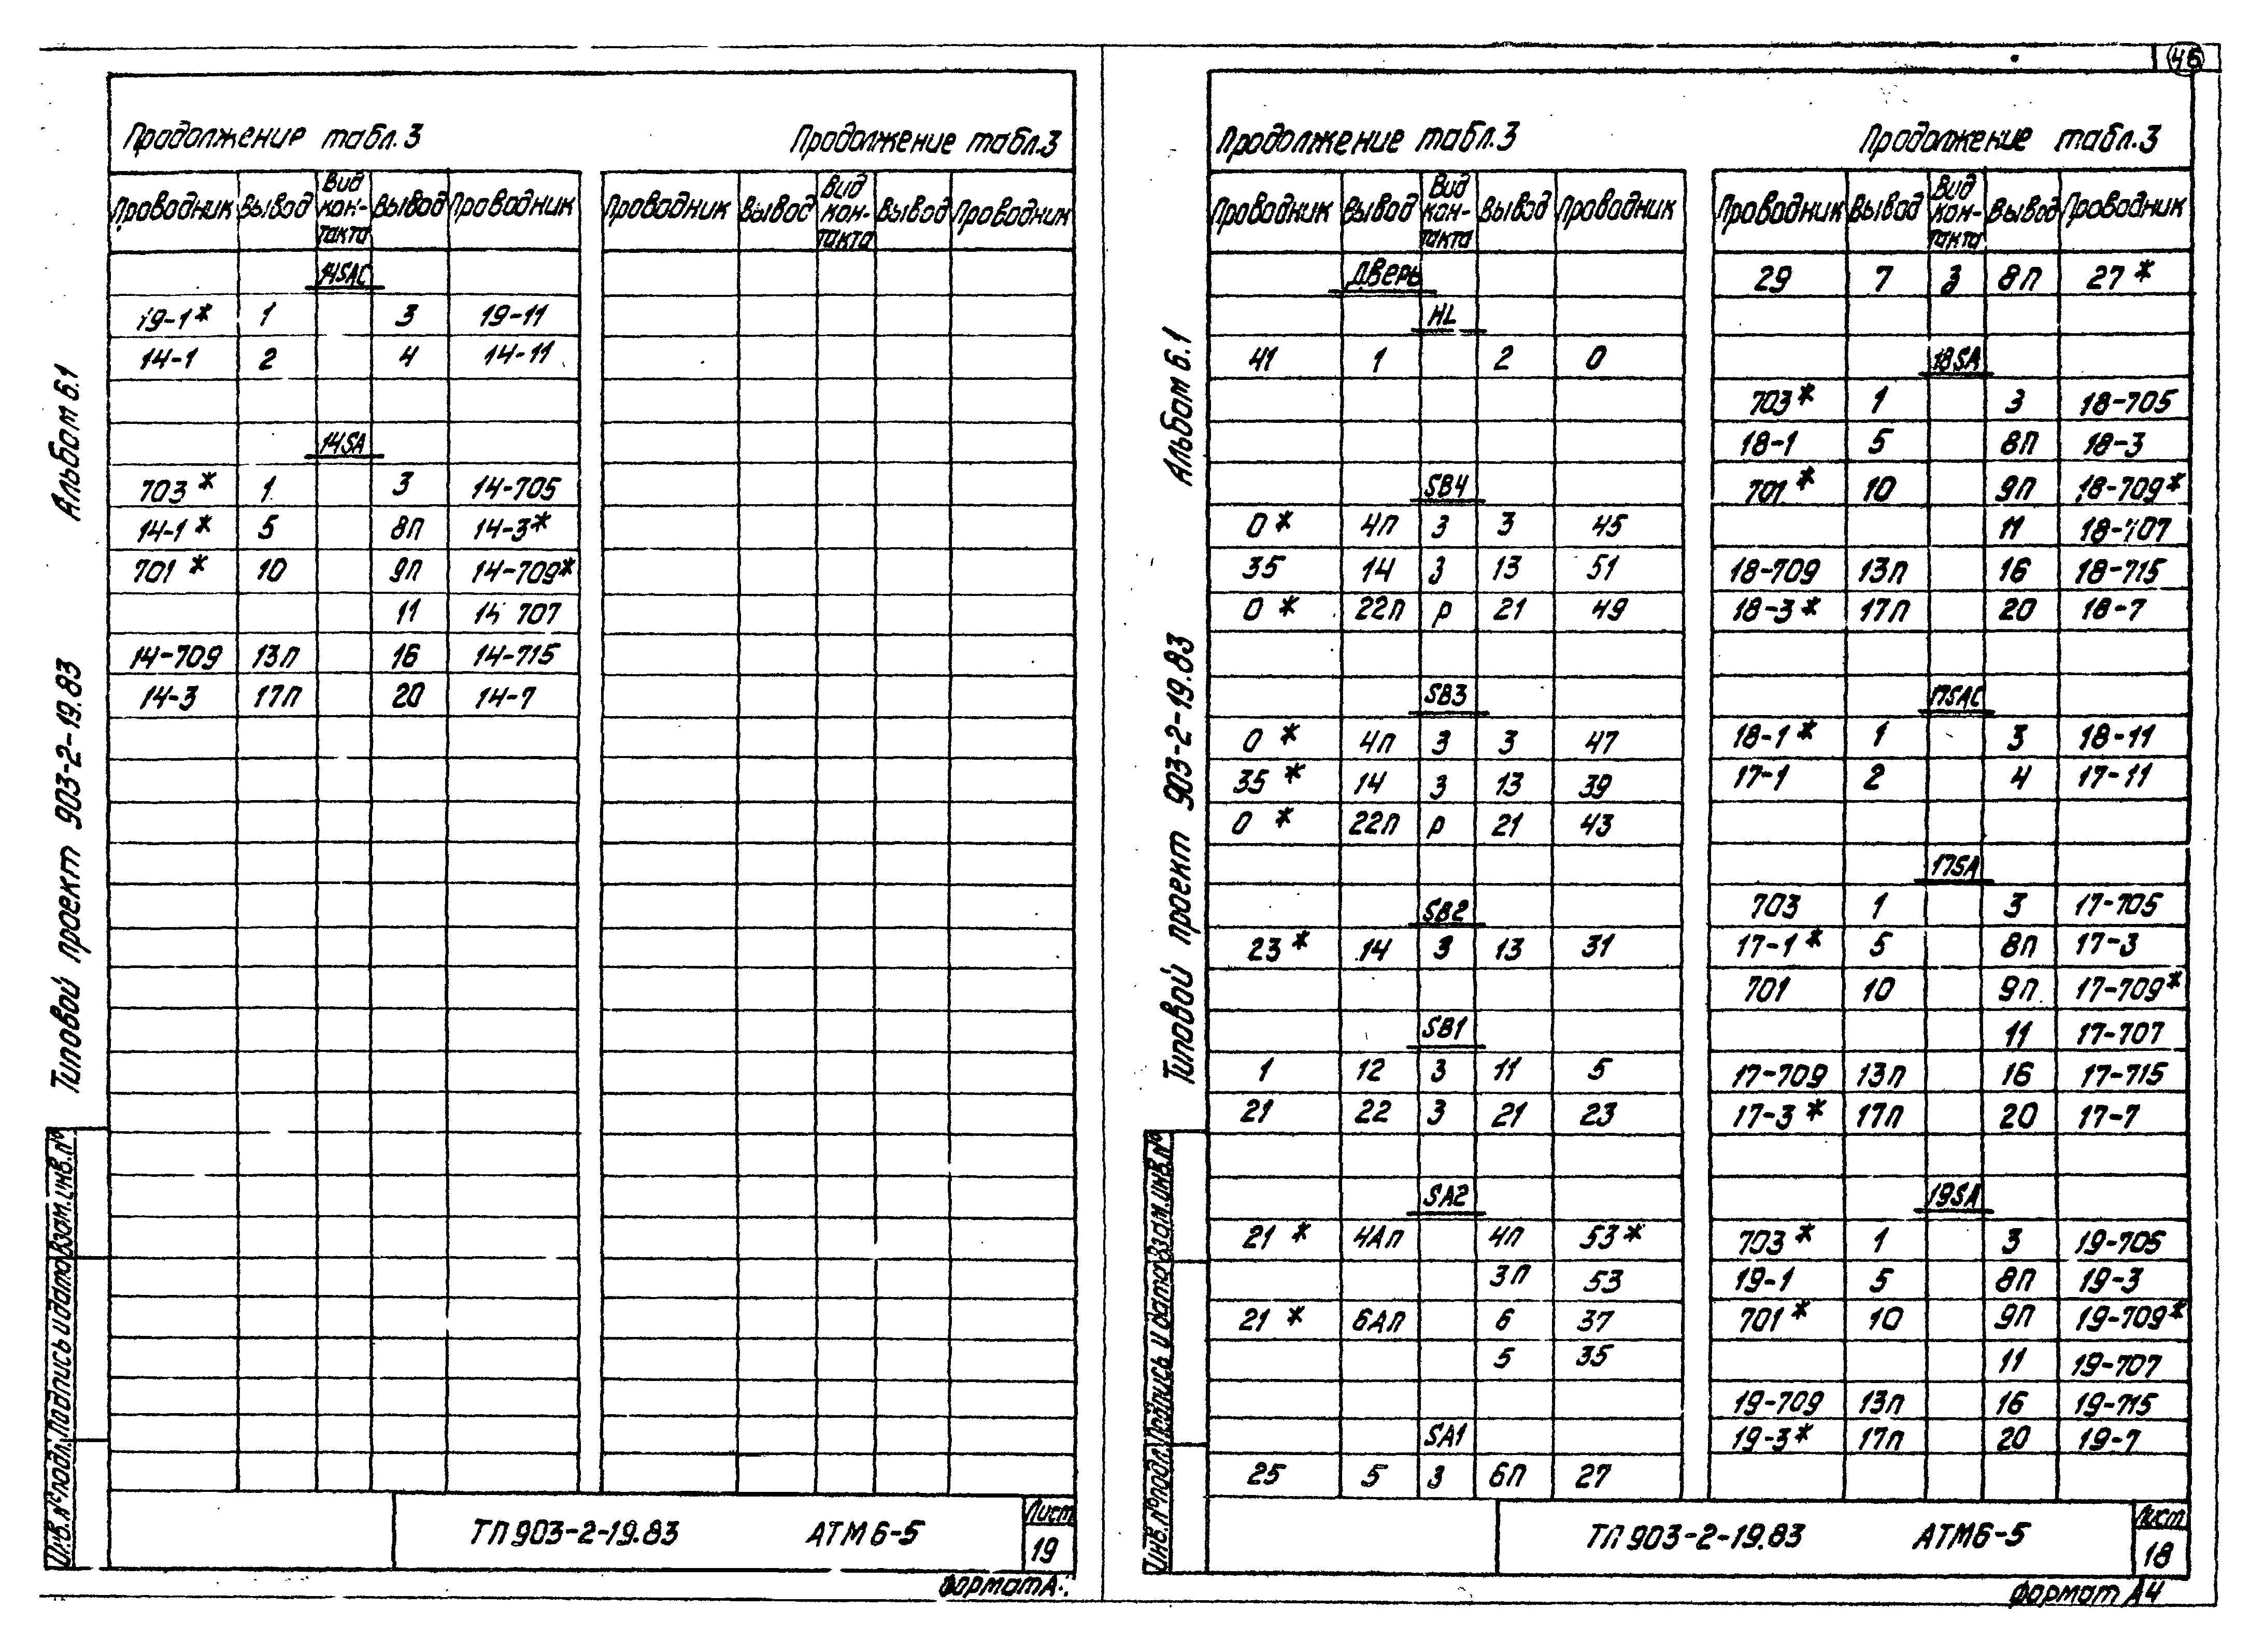 46
Продолжение табл.3 Продолжение табл.3
Проводник Вывод Вид кон-такта Вывод Проводник Проводник Вывод Вид кон-такта Вывод Проводник
14SAC
19-1* 1 3 19-11
14-1 2 4 14-11
14SA
703* 1 3 14-705
14-1* 5 8п 14-3*
701* 10 9п 14-709*
11 14 707
14-709 13п 16 14-715
14-3 17п 20 14-7
Альбом 6.1
Типовой проект 903-2-19.83
Инв.№ подл. Подпись и дата Взам.инв.№
ТП 903-2-19.83 АТМ6-5
Лист
19
Формат А
Продолжение табл.3 Продолжение табл.3
Проводник Вывод Вид кон-такта Вывод Проводник
Дверь
HL
41 1 2 0
SB4
0* 4п З 3 45
35 14 З 13 51
0* 22п р 21 49
SB3
0* 4п З 3 47
35* 14 З 13 39
0* 22п р 21 43
SB2
23* 14 З 13 31
SB1
1 12 З 11 5
21 22 З 21 23
SA2
21* 4Ап 4п 53*
3п 53
21* 6Ап 6 37
5 35
SA1
25 5 З 6п 27
Проводник Вывод Вид кон-такта Вывод Проводник
29 7 З 8п 27*
18SA
703* 1 3 18-705
18-1 5 8п 18-3
701* 10 9п 18-709*
11 18-707
18-709 13п 16 18-715
18-3* 17п 20 18-7
17SAC
18-1* 1 3 18-11
17-1 2 4 17-11
17SA
703 1 3 17-705
17-1* 5 8п 17-3
701 10 9п 17-709*
11 17-707
17-709 13п 16 17-715
17-3* 17п 20 17-7
19SA
703* 1 3 19-705
19-1 5 8п 19-3
701* 10 9п 19-709*
11 19-707
19-709 13п 16 19-715
19-3* 17п 20 19-7
Альбом 6.1
Типовой проект 903-2-19.83
Инв.№ подл. Подпись и дата Взам.инв.№
ТП 903-2-19.83 АТМ6-5
Лист
18
Формат А4